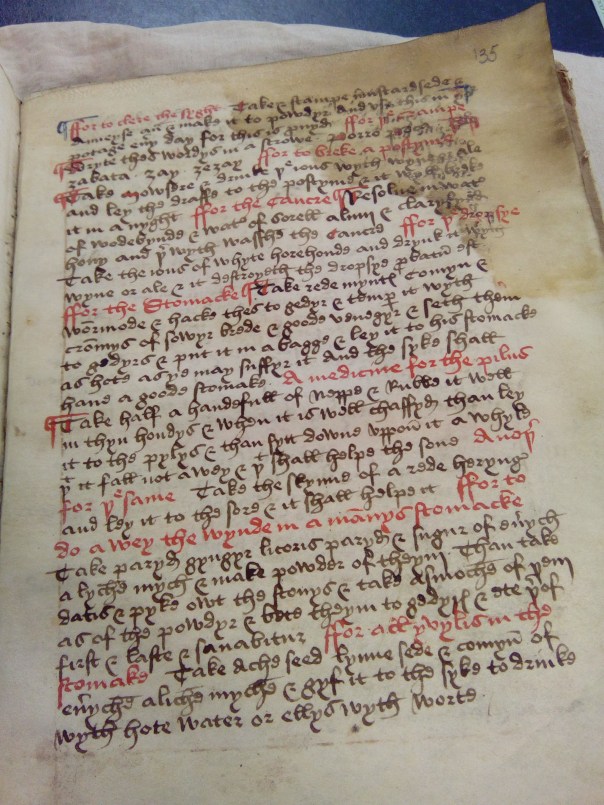 135
ffor to clere the syght Take & stampe mustardsede &
Anneyse & make it to powdyr and vse this in
potage eny day for this is ffor
wryte thes wordys in a strowe Porro
zabata zay zezay ffor to breke a postyme
Take Mowsere & drynke þe ious wyth ale
and ley the draffe to the postyme & it wyll breke
it in a nyght ffor the Cancre Resolve in wat
of wodebynde & wat of sorell alum & claryfyed
hony and þt wyth wasshe the Cancre ffor þe dropsye
Take the ious of whyte horehonde and drynk it wyth
wyne or ale & it destroyeth the dropsye est
ffor the Stomacke Take rede mynte Comyn &
wormode & hacke thes to gedyr & temp it wyth
cromys of sowyr brede & goode venegyr & seth them
to gedyrs & put it in a bagge & ley it to his stomacke
as hote as ye may suffyr it and the syke shall
haue a goode stomake A medicine for the pilus
Take half a handefull of Neppe & Rubbe it well
in thyn hondys & when it is well chaffyd than ley
it to the pylys & than sytt downe vppon it a whyle
þt it fall not a wey & þt shall helpe the sone Anoþ
for þe same Take the skynne of a rede heryng
and ley it to the sore & it shall helpe it ffor to
do a wey the wynde in a mannys stomacke
Take paryd gyngyr licoris paryd & sugur of eu'ych
a lyche mych & make powder of theym Than take
datis & pyke owt the stonys & take Asmoche of þem
as of the powdyr & bete theym to gedyr & ete þt of
first & laste & sanabitur ffor all yvylis in the
stomake Take Ache seed lynne sede & comyn of
eu'yche aliche myche & gyf it to the syke to drinke
wyth hote water or ellys wyth worte